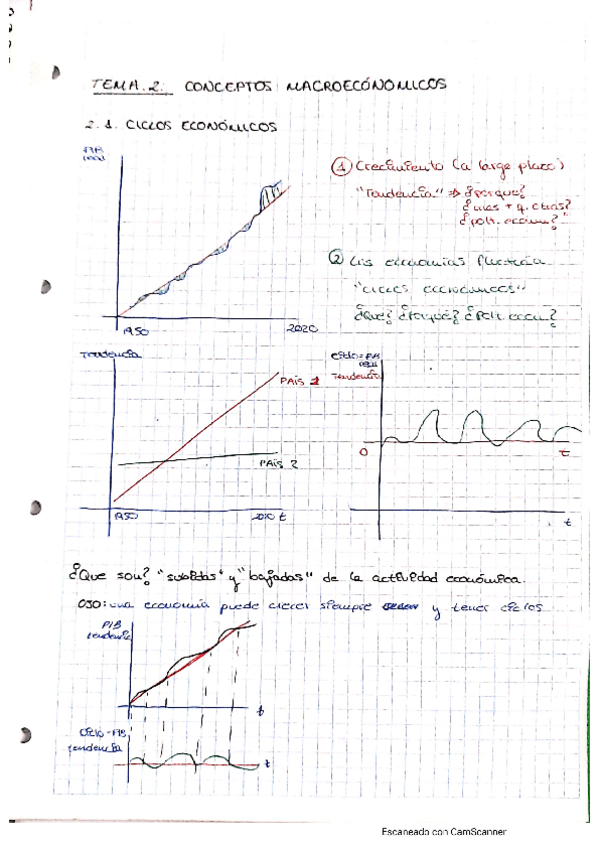 TEMA.2. CONCEPTOS MACROECÓNOMICOS
2.1. CICLOS ECONÓMICOS
PIB
real
① Crecimiento (a largo plazo)
"Tendencia" => ¿porque?
¿unos + q. otros?
¿polit. econom?
② Las economías fluctúan
"ciclos económicos"
¿Que? ¿Porqué? ¿Polit. econ.?
1950
2020
Tendencia
PAIS 1
PAIS 2
1950
2020 t
Ciclo = PIB
real
Tendencia
0
t
t
¿Que son? "subidas" y "bajadas" de la actividad económica.
OJO: una economía puede crecer siempre y tener ciclos
PIB
tendencia
t
Ciclo = PIB
tendencia
t
Escaneado con CamScanner